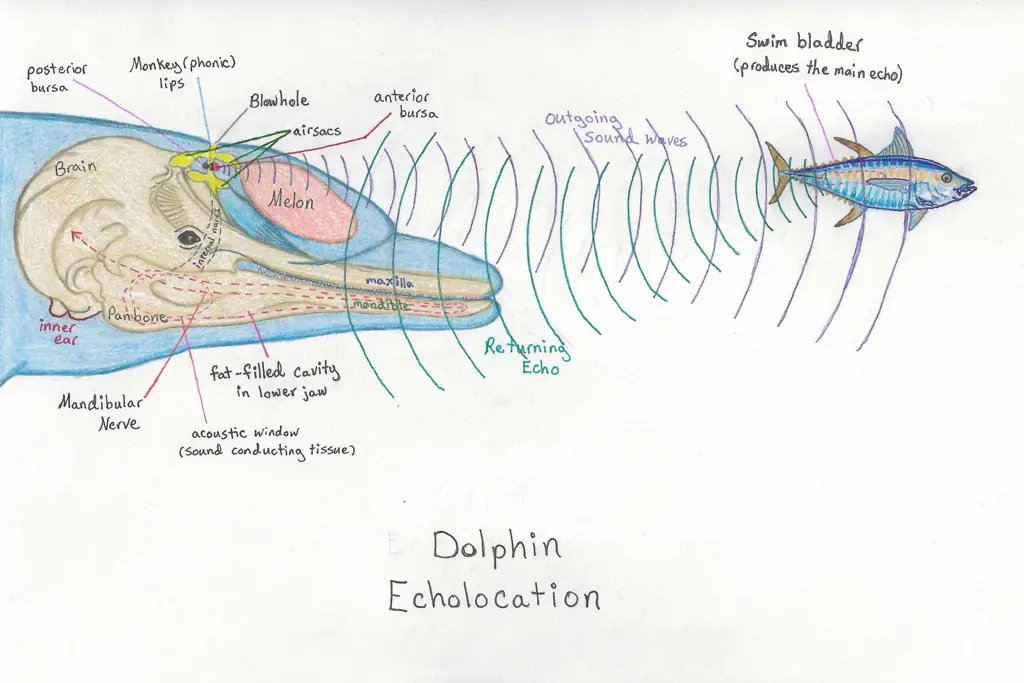 Swim bladder
(produces the main echo)
posterior
bursa
Monkey(phonic)
lips
Blowhole
airsacs
anterior
bursa
Outgoing
sound waves
Brain
Melon
internal nares
maxilla
mandible
Panbone
inner
ear
Returning
Echo
fat-filled cavity
in lower jaw
Mandibular
Nerve
acoustic window
(sound conducting tissue)
Dolphin
Echolocation